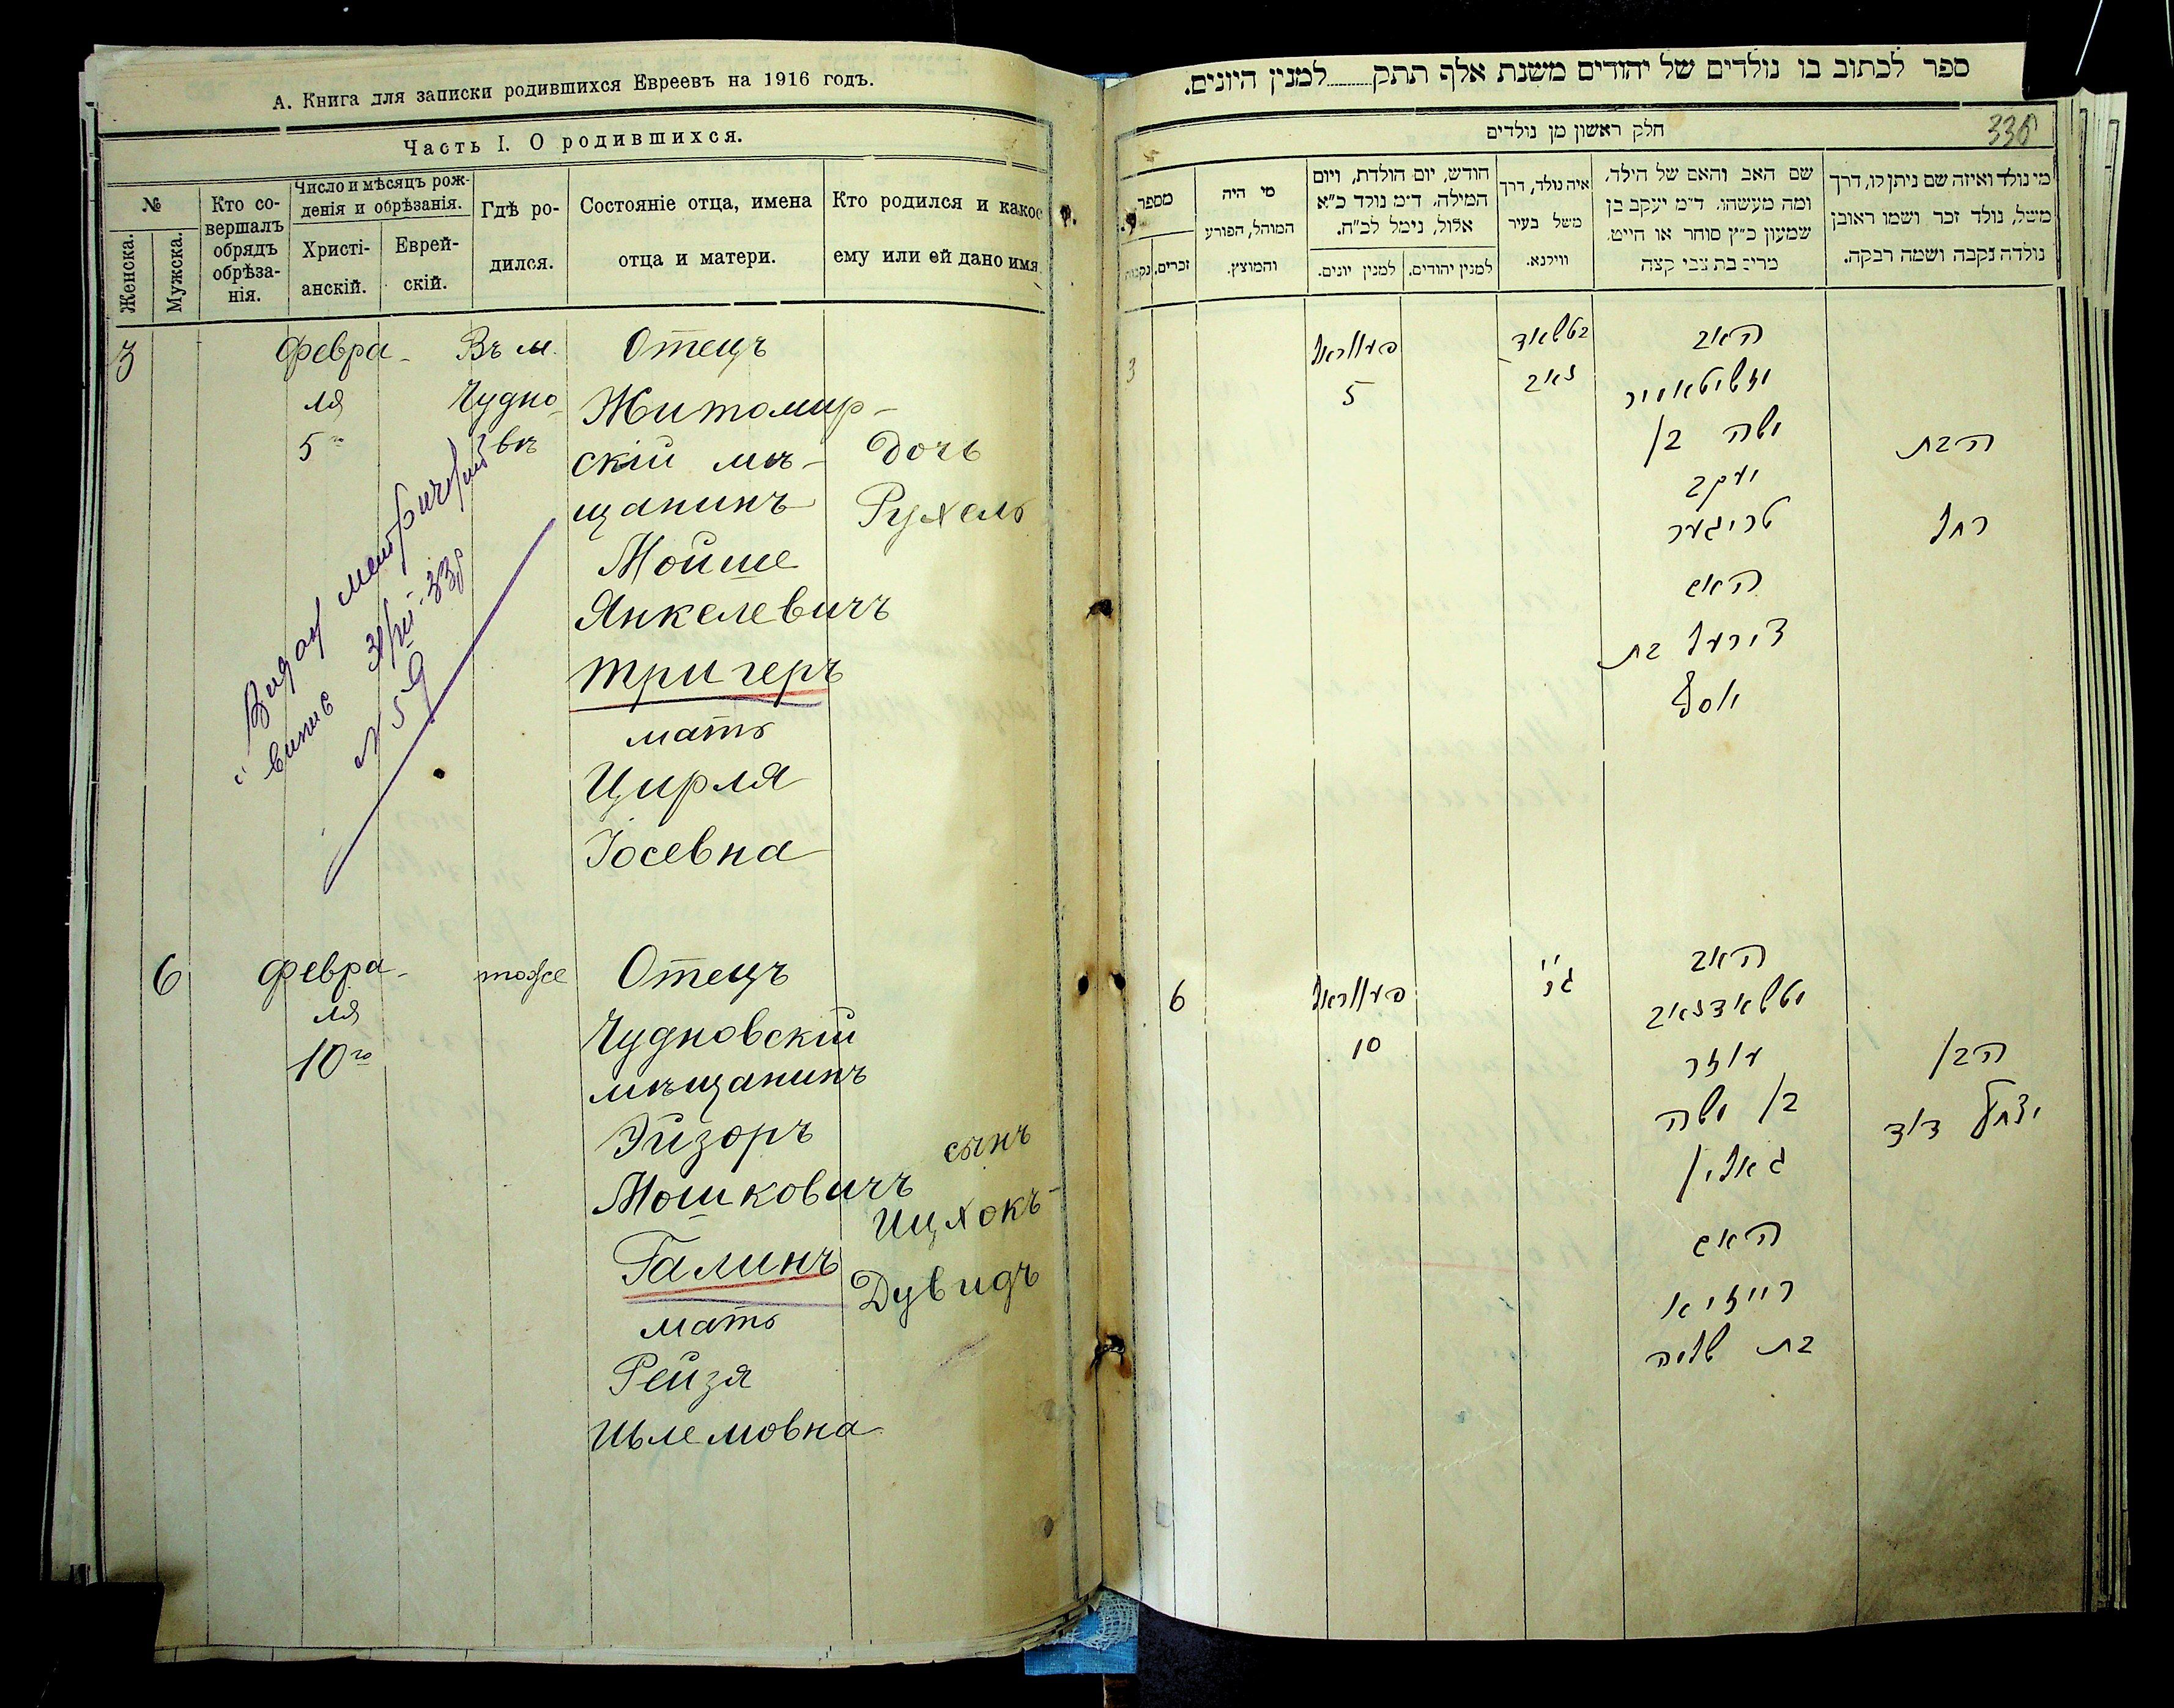 А. Книга для записки родившихся Евреевъ на 1916 годъ.
Часть I. О родившихся.
№
Женска.
Мужска.
Кто со-
вершалъ
обрядъ
обрѣза-
нія.
Число и мѣсяцъ рож-
денія и обрѣзанія.
Христі-
анскій.
Еврей-
скій.
Гдѣ ро-
дился.
Состояніе отца, имена
отца и матери.
Кто родился и какое
ему или ей дано имя
3
Февра-
ля
5го
Въ м.
Чудно-
вѣ
Отецъ
Житомир-
скій мѣ-
щанинъ
Мойше
Янкелевичъ
Тригеръ
мать
Цирля
Іосевна
Дочь
Рухель
№ 59
6
Февра-
ля
10го
тоже
Отецъ
Чудновскій
мѣщанинъ
Эйзоръ
Мошковичъ
Галинъ
мать
Рейзя
Шлемовна
сынъ
Ицхокъ-
Дувидъ
ספר לכתוב בו נולדים של יהודים משנת אלף תתק למנין היונים.
חלק ראשון מן נולדים
338
מספר
זכרים.
נקבות
מי היה
המוהל, הפורע
והמוצץ.
חודש, יום הולדת, ויום
המילה. ד״מ נולד כ״א
אלול, נימל לכ״ח.
למנין יונים.
למנין יהודים.
איה נולד, דרך
משל בעיר
ווילנא.
שם האב והאם של הילד,
ומה מעשהו. ד״מ יעקב בן
שמעון כ״ץ סוחר או חייט,
מרים בת צבי קצה
מי נולד ואיזה שם ניתן לו, דרך
משל, נולד זכר ושמו ראובן
נולדה נקבה ושמה רבקה.
3
פעווראל
5
האב
משה בן
יעקב
טריגער
האם
צירעל בת
יוסף
הבת
רחל
6
פעווראל
10
האב
בן משה
גאלין
האם
רייזיא
בת שלמה
הבן
יצחק דוד